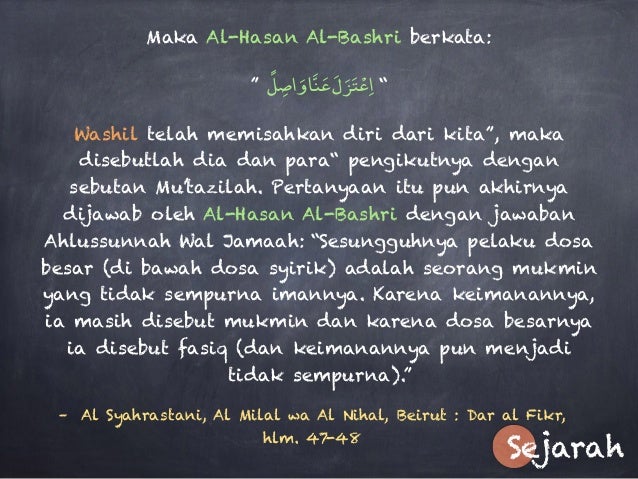 Maka Al-Hasan Al-Bashri berkata:
” اِعْتَزَلَ عَنَّا وَاصِلً “
Washil telah memisahkan diri dari kita”, maka
disebutlah dia dan para“ pengikutnya dengan
sebutan Mu’tazilah. Pertanyaan itu pun akhirnya
dijawab oleh Al-Hasan Al-Bashri dengan jawaban
Ahlussunnah Wal Jamaah: “Sesungguhnya pelaku dosa
besar (di bawah dosa syirik) adalah seorang mukmin
yang tidak sempurna imannya. Karena keimanannya,
ia masih disebut mukmin dan karena dosa besarnya
ia disebut fasiq (dan keimanannya pun menjadi
tidak sempurna).”
- Al Syahrastani, Al Milal wa Al Nihal, Beirut : Dar al Fikr,
hlm. 47-48
Sejarah